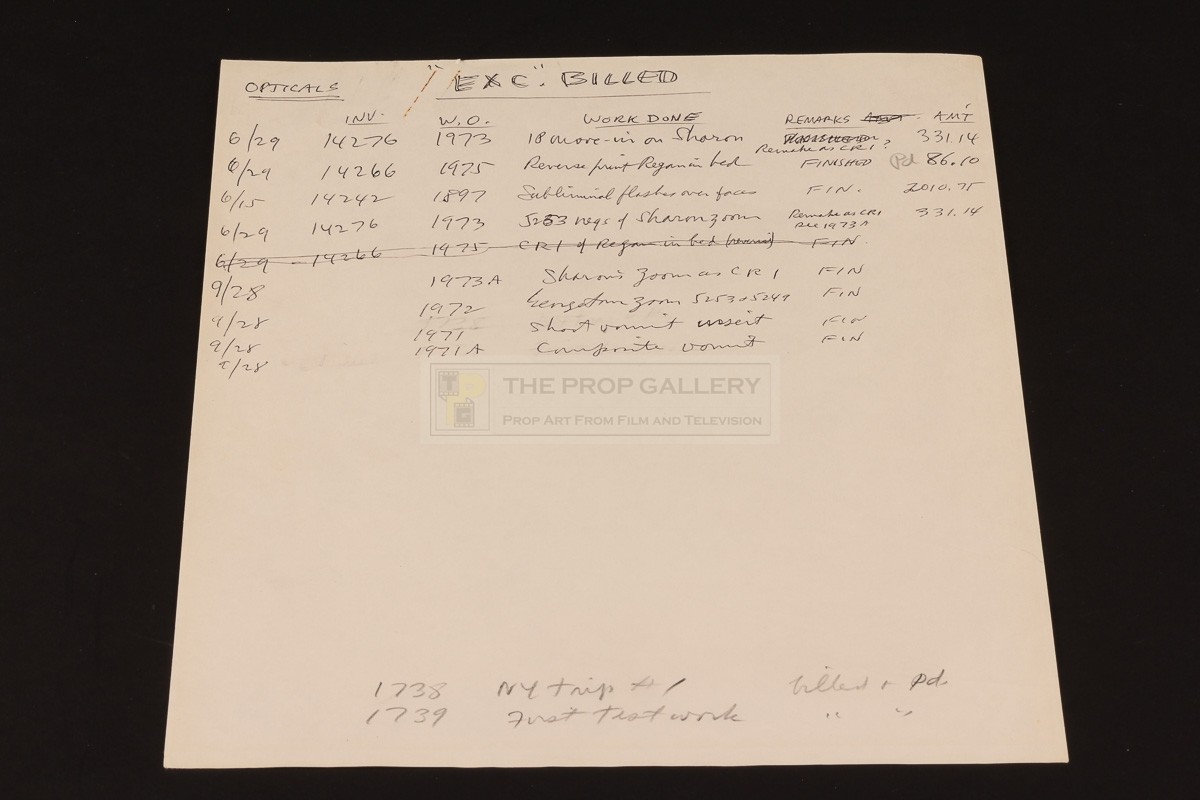 OPTICALS "EXC". BILLED
INV. W.O. WORK DONE REMARKS AMT
6/29 14276 1973 18 move-in on Sharon Remake as CRI? 331.14
6/29 14266 1975 Reverse print Regan in bed FINISHED Pd 86.10
6/15 14242 1897 Subliminal flashes over faces FIN. 2010.75
6/29 14276 1973 5253 negs of Sharon zoom Remake as CRI 331.14
see 1973A
6/29 14266 1975 CRI of Regan in bed (reverse) FIN.
9/28 1973A Sharon's Zoom as CRI FIN
9/28 1972 zoom 5253 5249 FIN
9/28 1971 Shoot vomit insert FIN
9/28 1971A Composite vomit FIN
THE PROP GALLERY
PROP ART FROM FILM AND TELEVISION
1738 NY trip #1 billed + Pd.
1739 First test work " "